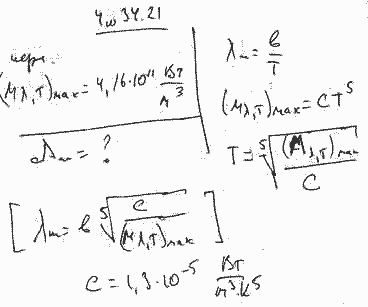 Чω 34.21
черн.
(Mλ,T)max = 4,16·10¹¹ Вт/м³
λm = ?
λm = b/T
(Mλ,T)max = CT⁵
T = ⁵√((Mλ,T)max/C)
[λm = b ⁵√(C/(Mλ,T)max)]
C = 1,3·10⁻⁵ Вт/м³K⁵